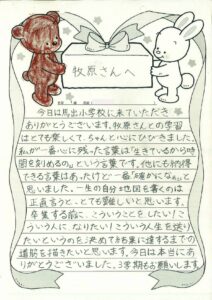 牧原さんへ
今日は馬出小学校に来ていただき
ありがとうございます。牧原さんとの学習
はとても楽しくて、ちゃんと心にひびきました。
私が一番心に残った言葉は「生きているから時
間を刻めるの」という言葉です。他にも納得
できる言葉はあったけど一番「確かになぁ」と
思いました。一生の自分地図を書くのは
正直言うと、とても難しいと思います。
卒業する前に、こういうことをしたい！こ
ういう人になりたい！こういう人生を送り
たいというのを決めて結果に達するまでの
道筋を描きたいと思います。今日は本当にあ
りがとうございました。3学期もお願いします。